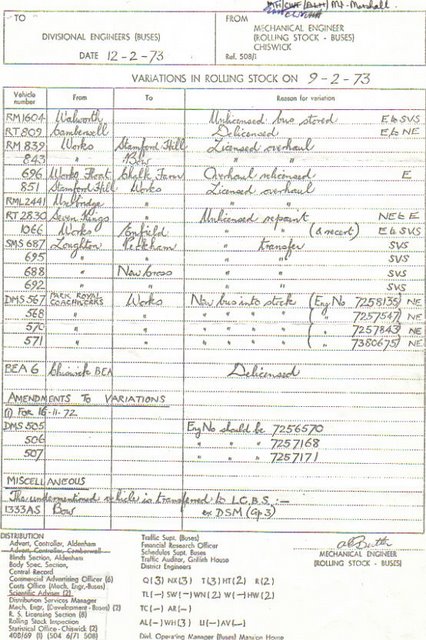 TO
DIVISIONAL ENGINEERS (BUSES)
DATE 12-2-73
FROM
MECHANICAL ENGINEER
(ROLLING STOCK - BUSES)
CHISWICK
Ref. 508/1
VARIATIONS IN ROLLING STOCK ON 9-2-73
Vehicle number From To Reason for variation
RM1604 Walworth Unlicensed bus stored E to SVS
RT809 Camberwell " Delicensed E to NE
RM 839 Works Stamford Hill Licensed overhaul
843 " Bow " "
696 Works Float Chalk Farm Overhaul relicensed E
851 Stamford Hill Works Licensed overhaul
RML2441 Uxbridge " " "
RT 2830 Seven Kings " Unlicensed repaint NE to E
1066 Works Enfield " " (& recert) E to SVS
SMS 687 Loughton Peckham " transfer SVS
695 " " " " SVS
688 " New Cross " " SVS
692 " " " " SVS
DMS 567 PARK ROYAL COACHWORKS Works New bus into stock (Eng No 7258135) NE
568 " " " " " " ( " 7257547) NE
570 " " " " " " ( " 7257843) NE
571 " " " " " " ( " 7380675) NE
BEA 6 Chiswick BEA Delicensed
AMENDMENTS TO VARIATIONS
(1) FOR 16-11-72
DMS 505 Eng No should be 7256570
506 " " " 7257168
507 " " " 7257171
MISCELLANEOUS
The undermentioned vehicle is transferred to L.C.B.S. :—
1333AS Bow ex DSM (Gp 3)
DISTRIBUTION
Advert. Controller, Aldenham
Advert. Controller, Camberwell
Blinds Section, Aldenham
Body Spec. Section,
Central Record
Commercial Advertising Officer (6)
Costs Office (Mech. Engr-Buses)
Scientific Adviser (2)
Distribution Services Manager
Mech. Engr. (Development - Buses) (2)
R. S. Licensing Section (8)
Rolling Stock Inspection
Statistical Office - Chiswick (2)
408/169 (1) (504 6/71 508)
Traffic Supt. (Buses)
Financial Research Officer
Schedules Supt. Buses
Traffic Auditor, Griffith House
District Engineers
Q(3) NX(3) T(3) HT(2) R(2)
TL(—) SW(—) WN(2) W(—) HW(2)
TC(—) AR(—)
AL(—) WH(3) U(—) AV(—)
Divl. Operating Manager (Buses) Mansion House
MECHANICAL ENGINEER
(ROLLING STOCK - BUSES)